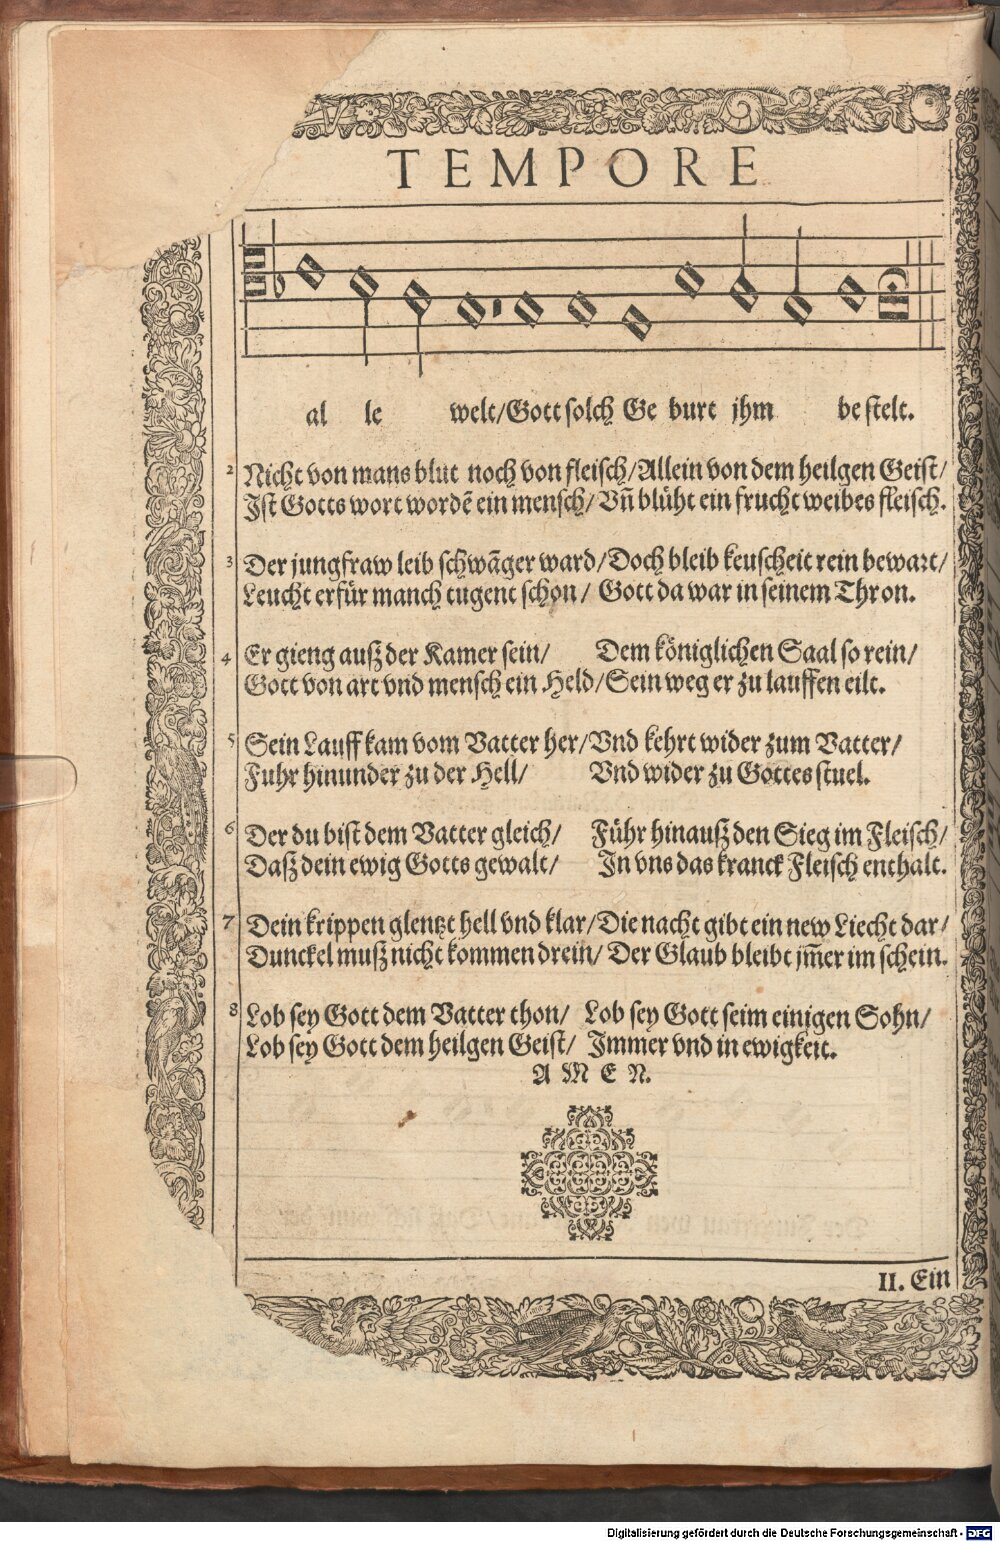 TEMPORE
al le welt/Gott solch Ge burt jhm be stelt.
2 Nicht von mans blut noch von fleisch/Allein von dem heilgen Geist/
Ist Gotts wort wordẽ ein mensch/Vñ blüht ein frucht weibes fleisch.
3 Der jungfraw leib schwãger ward/Doch bleib keuscheit rein bewart/
Leucht erfür manch tugent schon/ Gott da war in seinem Thron.
4 Er gieng auß der Kamer sein/ Dem königlichen Saal so rein/
Gott von art vnd mensch ein Held/Sein weg er zu lauffen eilt.
5 Sein Lauff kam vom Vatter her/Vnd kehrt wider zum Vatter/
Fuhr hinunder zu der Hell/ Vnd wider zu Gottes stuel.
6 Der du bist dem Vatter gleich/ Führ hinauß den Sieg im Fleisch/
Daß dein ewig Gotts gewalt/ In vns das kranck Fleisch enthalt.
7 Dein krippen glentzt hell vnd klar/Die nacht gibt ein new Liecht dar/
Dunckel muß nicht kommen drein/ Der Glaub bleibt jm̃er im schein.
8 Lob sey Gott dem Vatter thon/ Lob sey Gott seim einigen Sohn/
Lob sey Gott dem heilgen Geist/ Immer vnd in ewigkeit.
A M E N.
II. Ein
Digitalisierung gefördert durch die Deutsche Forschungsgemeinschaft - DFG